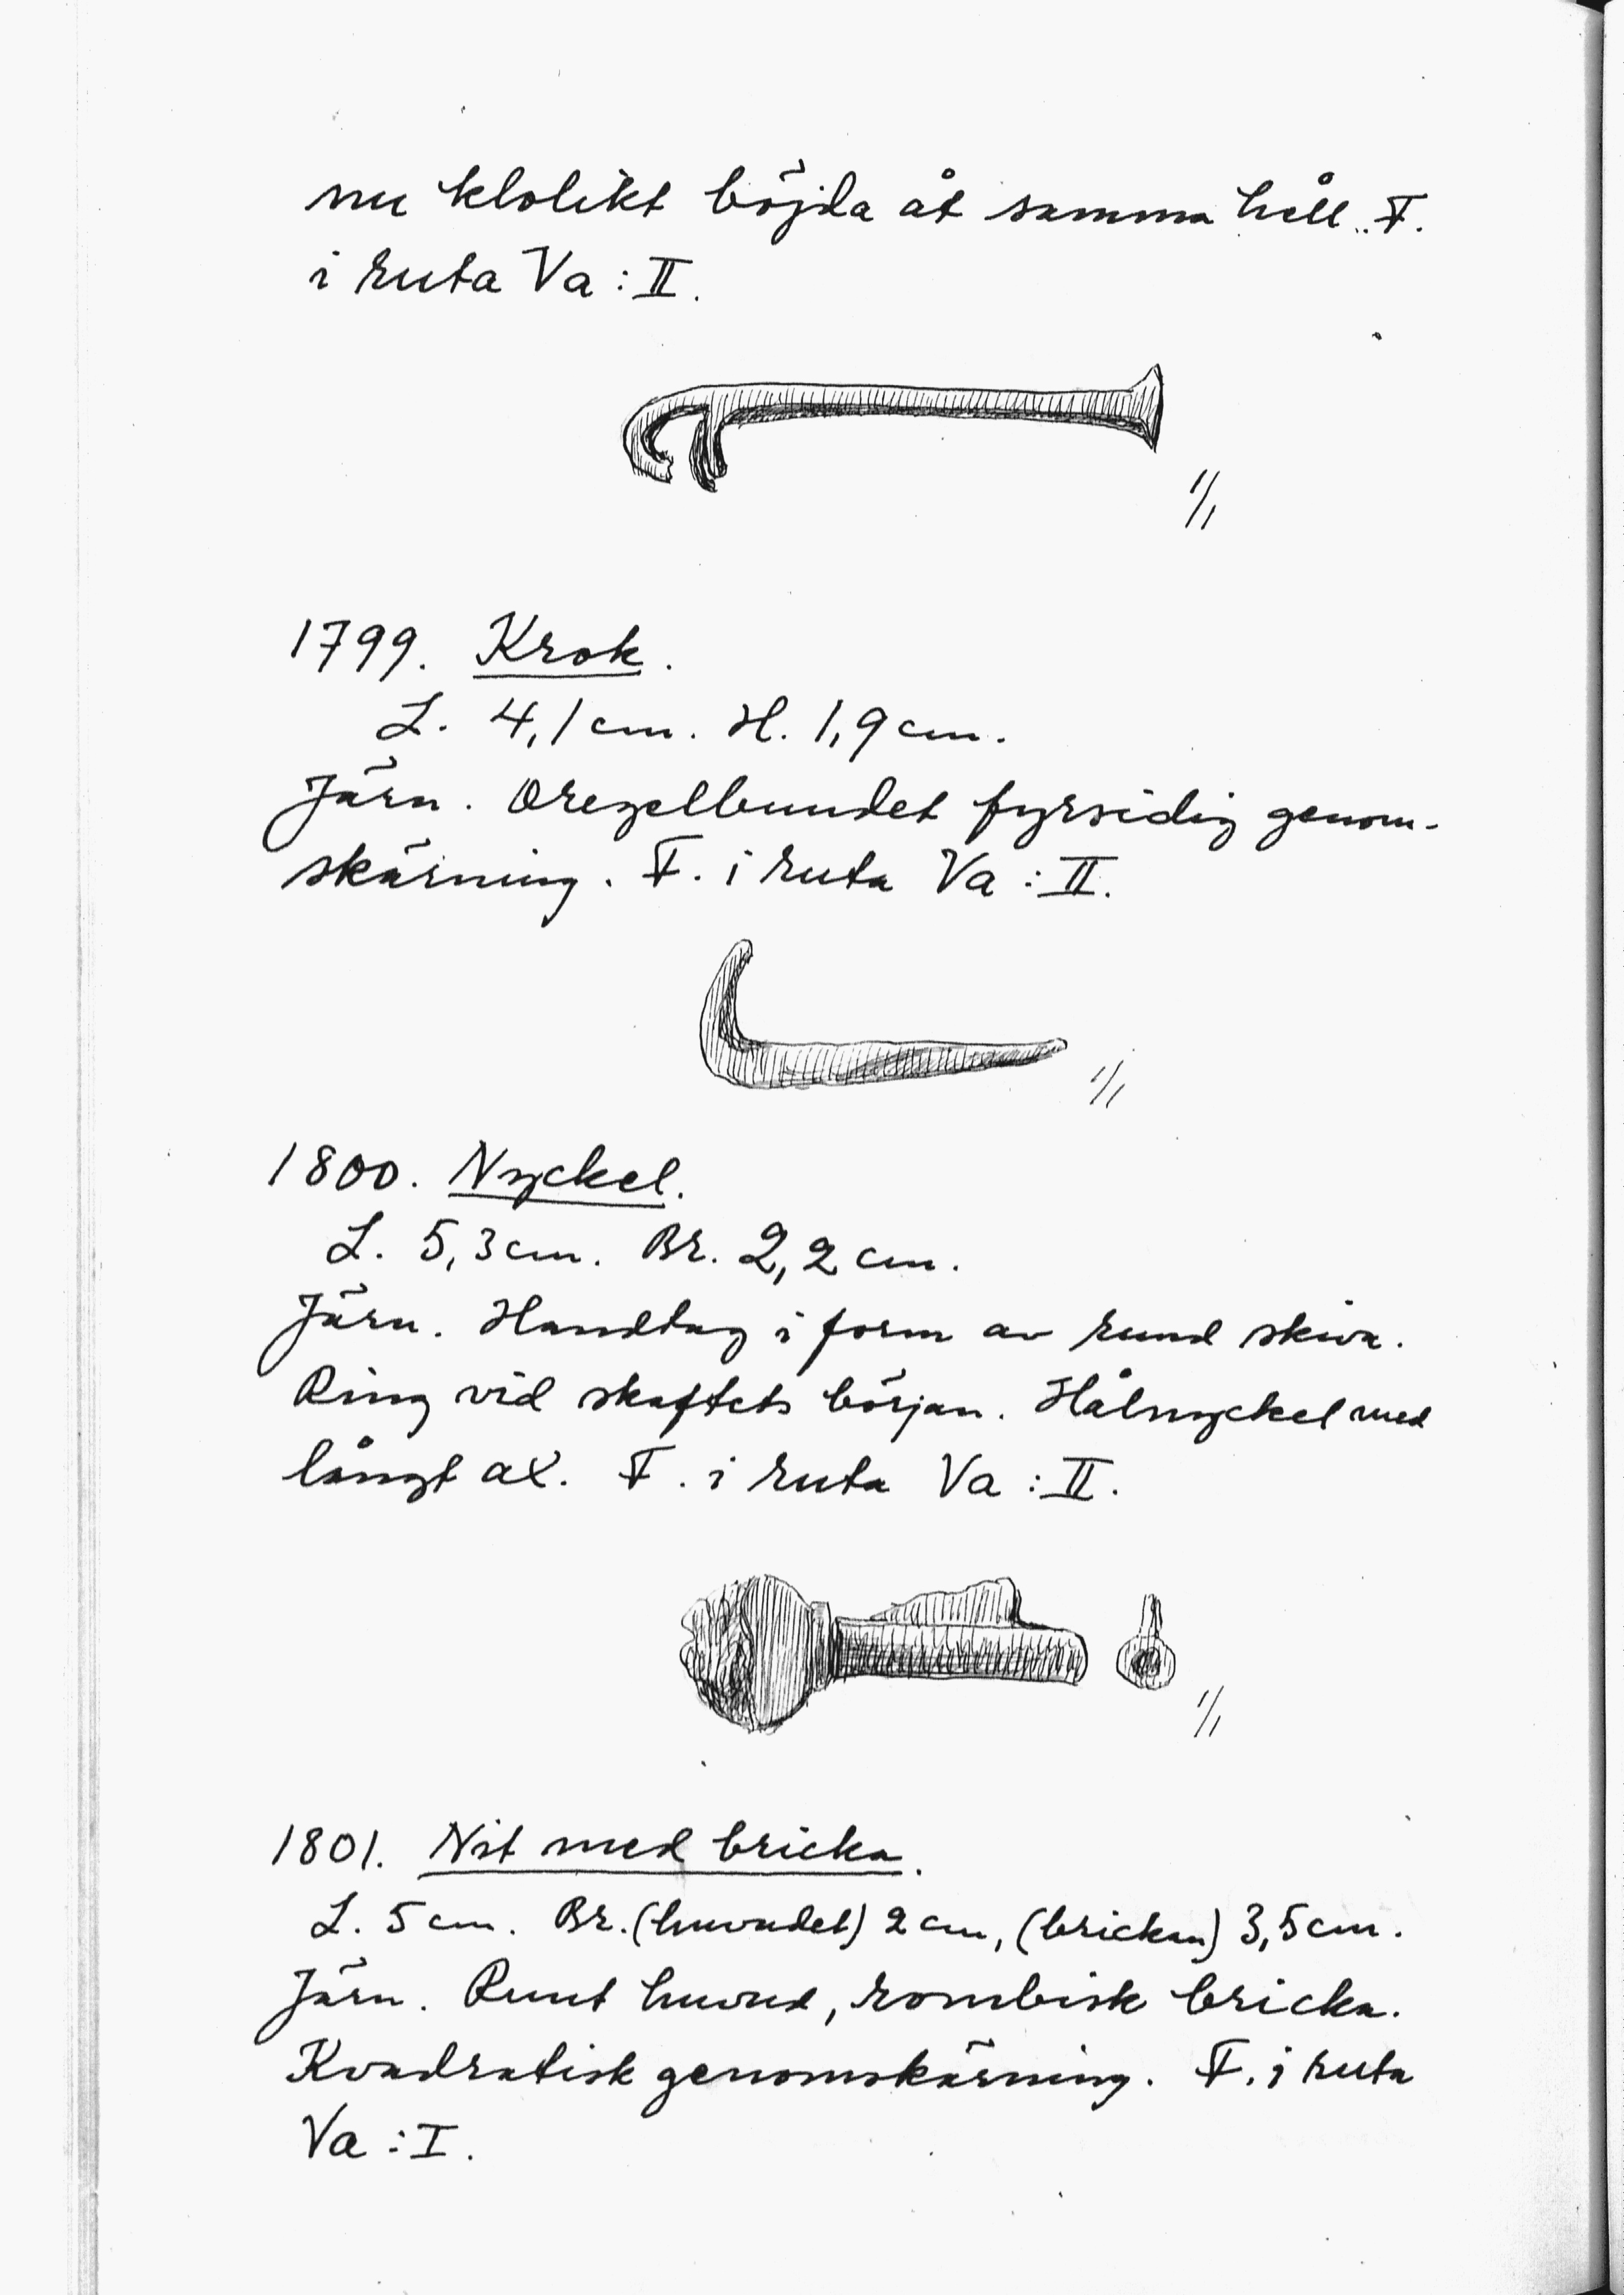 nu klolikt böjda åt samma håll. F.
i ruta Va : II.
1/1
1799. Krok.
L. 4,1 cm. H. 1,9 cm.
Järn. Oregelbundet fyrsidig genom-
skärning. F. i ruta Va : II.
1/1
1800. Nyckel.
L. 5,3 cm. Br. 2,2 cm.
Järn. Handtag i form av rund skiva.
Ring vid skaftets början. Hålnyckel med
långt ax. F. i ruta Va : II.
1/1
1801. Nit med bricka.
L. 5 cm. Br. (huvudet) 2 cm, (brickan) 3,5 cm.
Järn. Runt huvud, rombisk bricka.
Kvadratisk genomskärning. F. i ruta
Va : I.